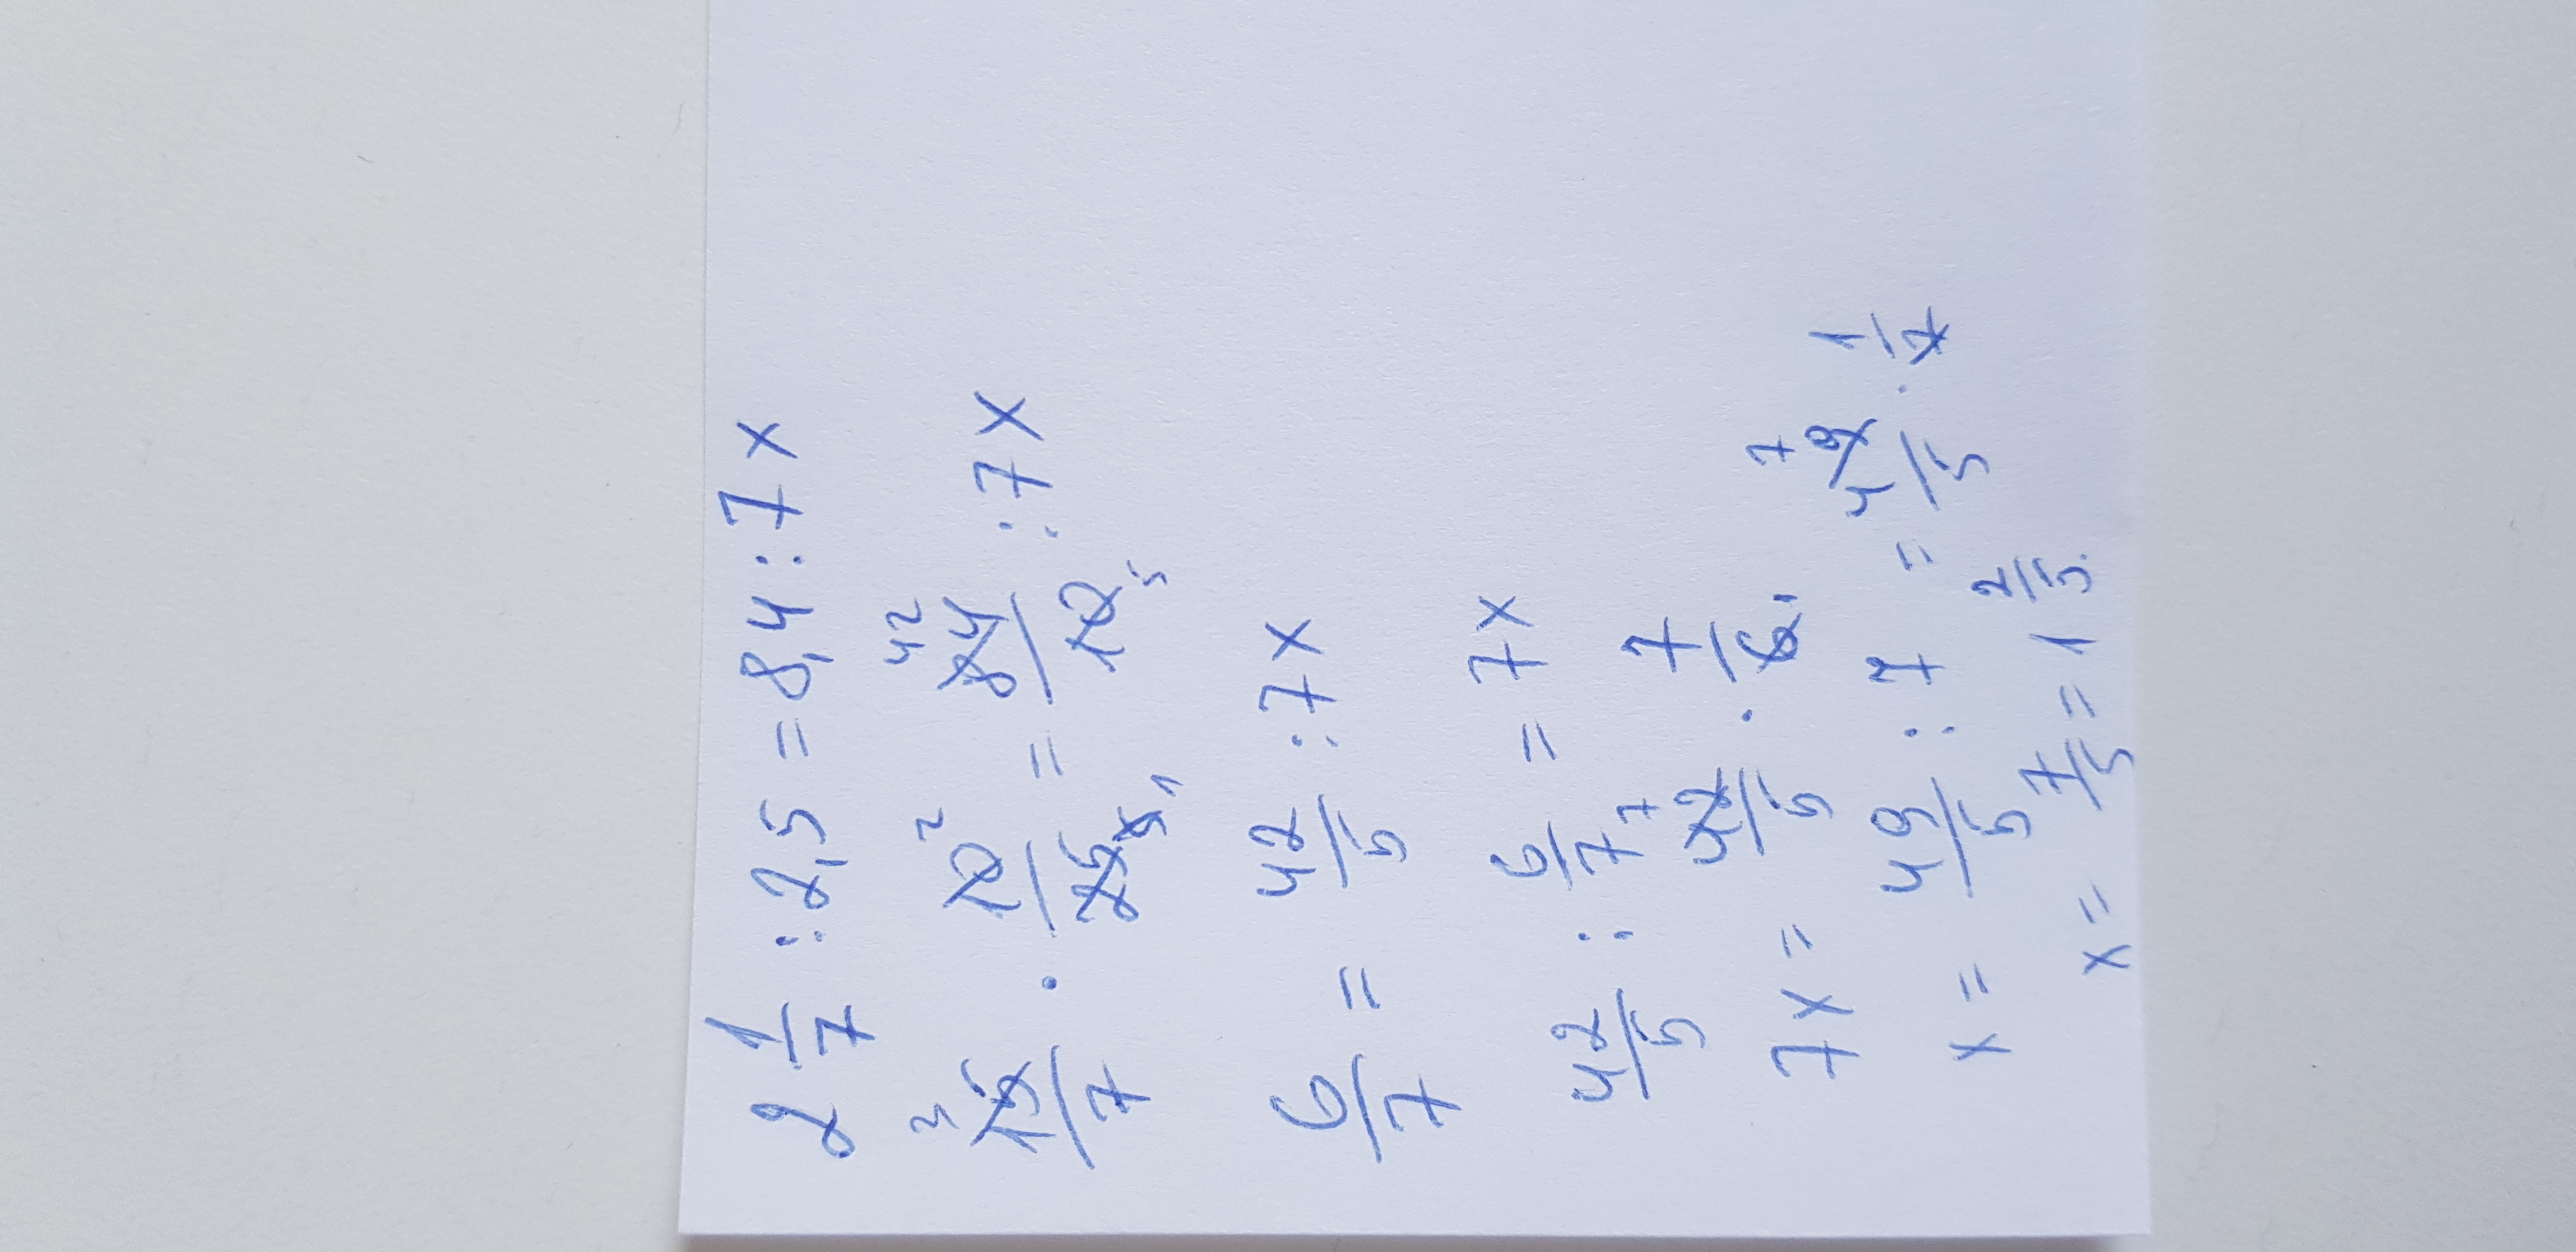 2 1/7 : 2,5 = 8,4 : 7x
3 15/7 · 10 2/25 5 1 = 42 84/10 5 : 7x
6/7 = 42/5 : 7x
42/5 : 6/7 = 7x
7x = 7 42/5 · 7/6
x = 49/5 : 7 = 7 49/5 · 1/7
x = 7/5 = 1 2/5